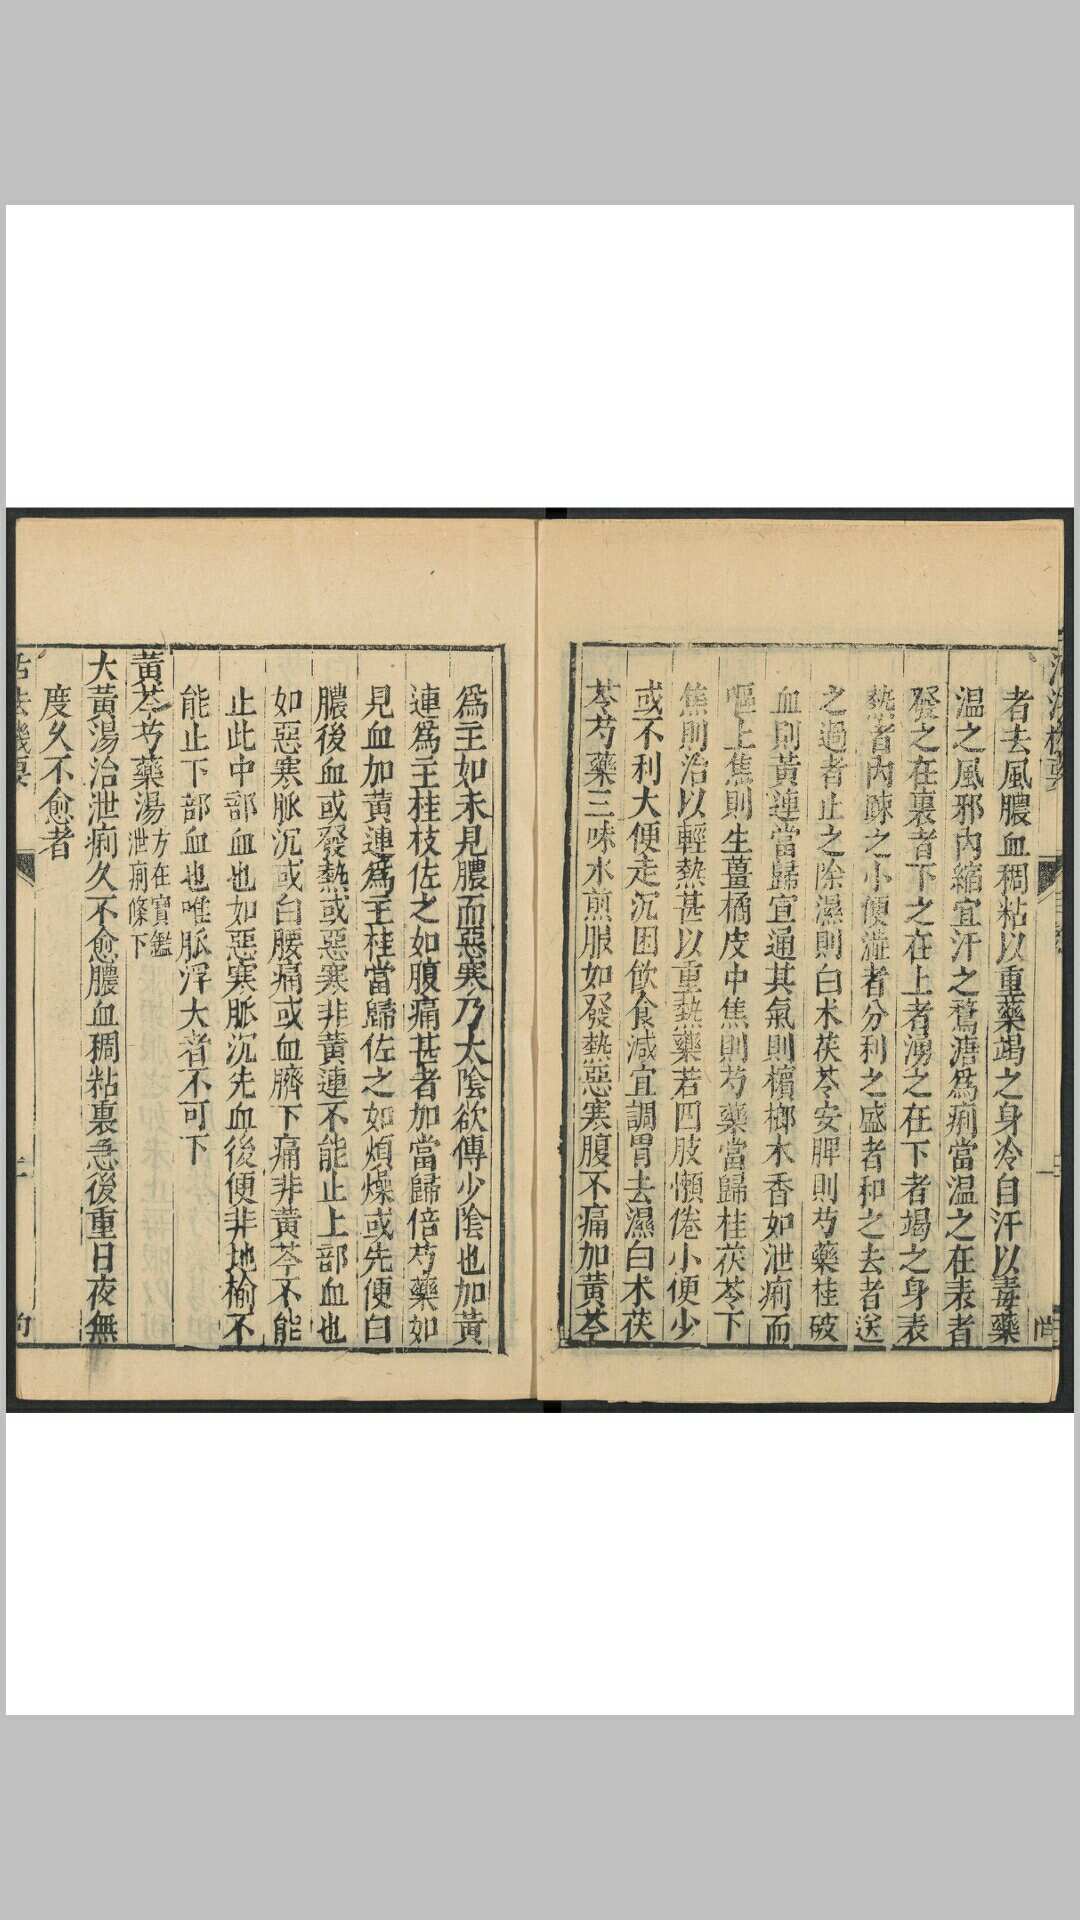 者去風膿血稠粘以重藥竭之身冷自汗以毒藥
温之風邪内縮宜汗之鶩溏爲痢當温之在表者
發之在裏者下之在上者湧之在下者竭之身表
熱者内疎之小便澁者分利之盛者和之去者送
之過者止之除濕則白术茯苓安脾則芍藥桂破
血則黄連當歸宜通其氣則檳榔木香如泄痢而
嘔上焦則生薑橘皮中焦則芍藥當歸桂茯苓下
焦則治以輕熱甚以重熱藥若四肢懶倦小便少
或不利大便走沉困飲食減宜調胃去濕白术茯
苓芍藥三味水煎服如發熱惡寒腹不痛加黄芩
爲主如未見膿而惡寒乃太陰欲傳少陰也加黄
連爲主桂枝佐之如腹痛甚者加當歸倍芍藥如
見血加黄連爲主桂當歸佐之如煩燥或先便白
膿後血或發熱或惡寒非黄連不能止上部血也
如惡寒脈沉或白腰痛或血臍下痛非黄芩不能
止此中部血也如惡寒脈沉先血後便非地榆不
能止下部血也唯脈浮大者不可下
黄芩芍藥湯方在寶鑑
泄痢條下
大黄湯治泄痢久不愈膿血稠粘裏急後重日夜無
度久不愈者